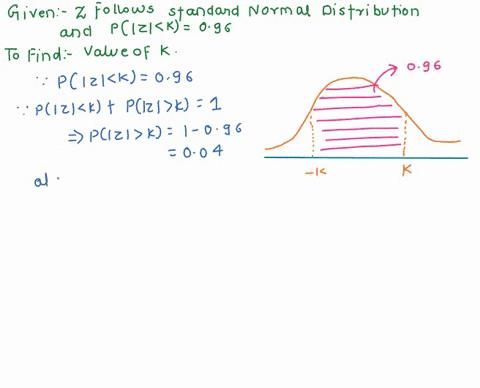 Given:- Z follows standard Normal Distribution
and P(|z|<K) = 0.96
To Find:- Value of K.
∵ P(|z|<K) = 0.96
∵ P(|z|<K) + P(|z|>K) = 1
⇒ P(|z|>K) = 1 - 0.96
= 0.04
al.
0.96
-K
K